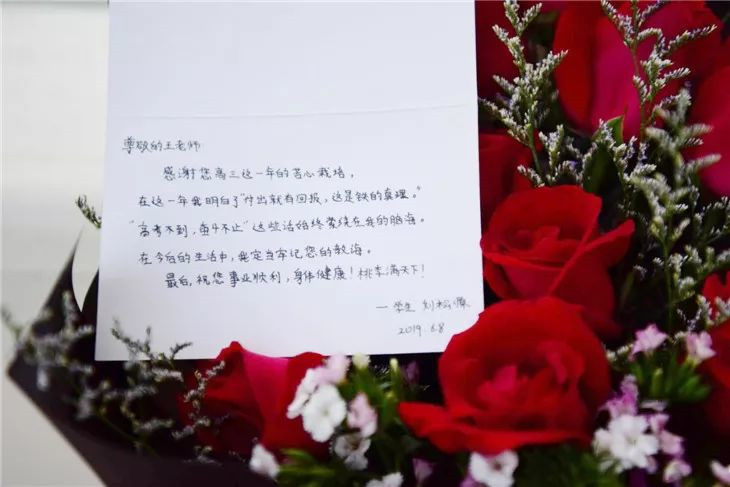 尊敬的王老师
感谢您高三这一年的苦心栽培，
在这一年我明白了“付出就有回报，这是铁的真理。”
“高考不到，奋斗不止”这些话始终萦绕在我的脑海。
在今后的生活中，我定当牢记您的教诲。
最后，祝您事业顺利，身体健康！桃李满天下！
一学生 刘松
2019.6.8